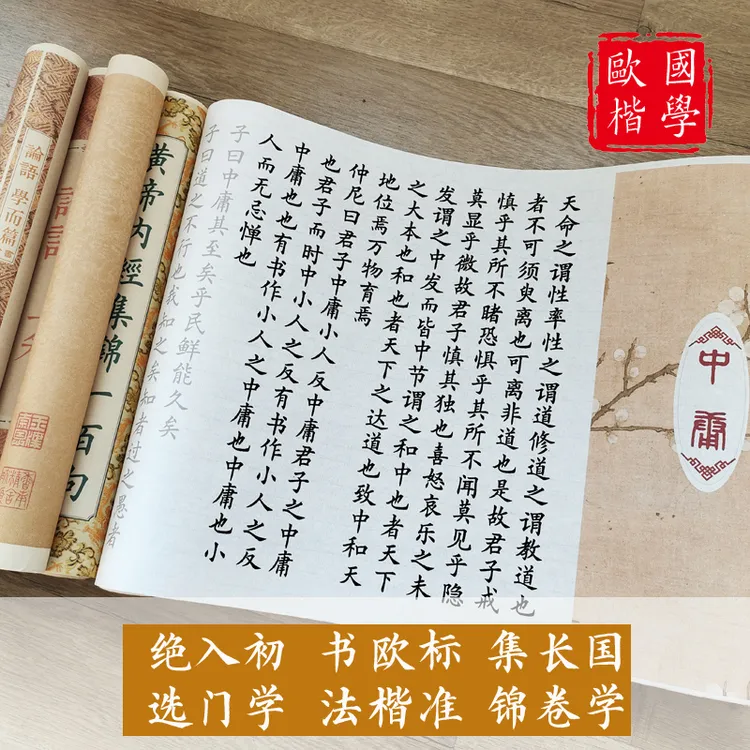 國學
歐楷
中庸
天命之谓性率性之谓道修道之谓教道也
者不可须臾离也可离非道也是故君子戒
慎乎其所不睹恐惧乎其所不闻莫见乎隐
莫显乎微故君子慎其独也喜怒哀乐之未
发谓之中发而皆中节谓之和中也者天下
之大本也和也者天下之达道也致中和天
地位焉万物育焉
仲尼曰君子中庸小人反中庸君子之中庸
也君子而时中小人之反有书作小人之反
中庸也也有书作小人之中庸也中庸也小
人而无忌惮也
子曰中庸其至矣乎民鲜能久矣
子曰道之不行也我知之矣知者过之愚者
黄帝内經集錦一百句
論語 學而篇
国学
长卷
集锦
标准
欧楷
书法
初学
入门
绝选